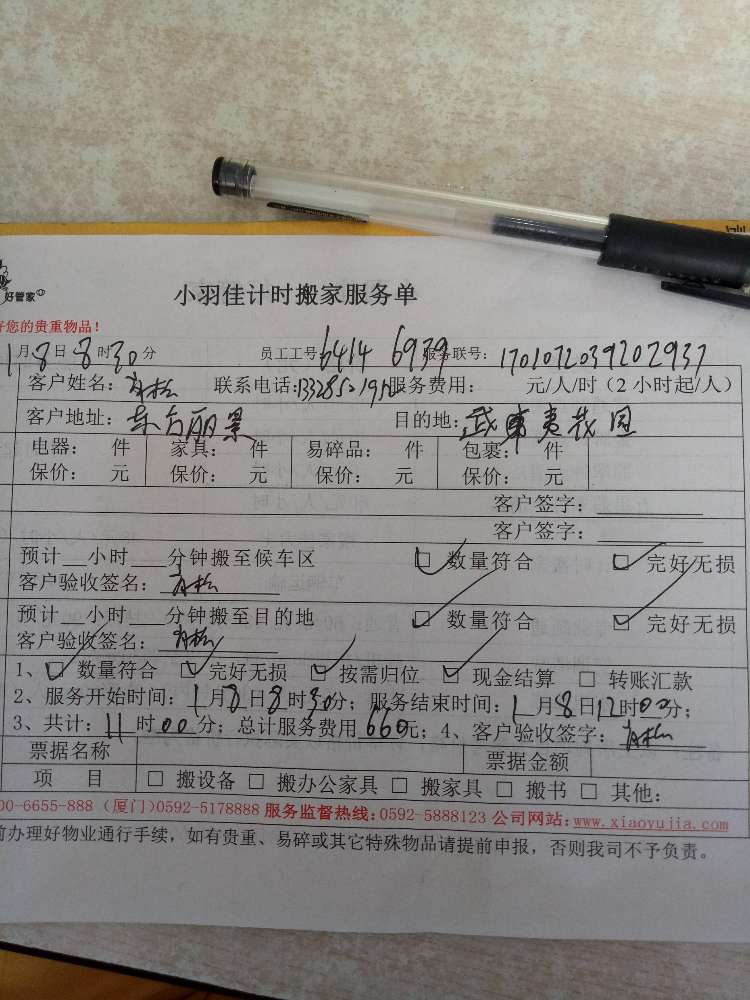 好管家
小羽佳计时搬家服务单
好您的贵重物品！
1月8日8时30分 员工工号: 6414 6939 服务联号: 1701072039202937
客户姓名: 联系电话: 服务费用: 元/人/时（2小时起/人）
客户地址: 东方丽景 目的地: 武夷花园
电器: 件 家具: 件 易碎品: 件 包裹: 件
保价: 元 保价: 元 保价: 元 保价: 元
客户签字:
客户签字:
预计__小时___分钟搬至候车区 □ 数量符合 □ 完好无损
客户验收签名:
预计__小时___分钟搬至目的地 □ 数量符合 □ 完好无损
客户验收签名:
1、□ 数量符合 □ 完好无损 □ 按需归位 □ 现金结算 □ 转账汇款
2、服务开始时间: 1月8日8时30分; 服务结束时间: 1月8日12时00分;
3、共计: 11时00分; 总计服务费用660元; 4、客户验收签字:
票据名称 票据金额
项 目 □ 搬设备 □ 搬办公家具 □ 搬家具 □ 搬书 □ 其他:
00-6655-888（厦门）0592-5178888 服务监督热线: 0592-5888123 公司网站: www.xiaoyujia.com
前办理好物业通行手续，如有贵重、易碎或其它特殊物品请提前申报，否则我司不予负责。